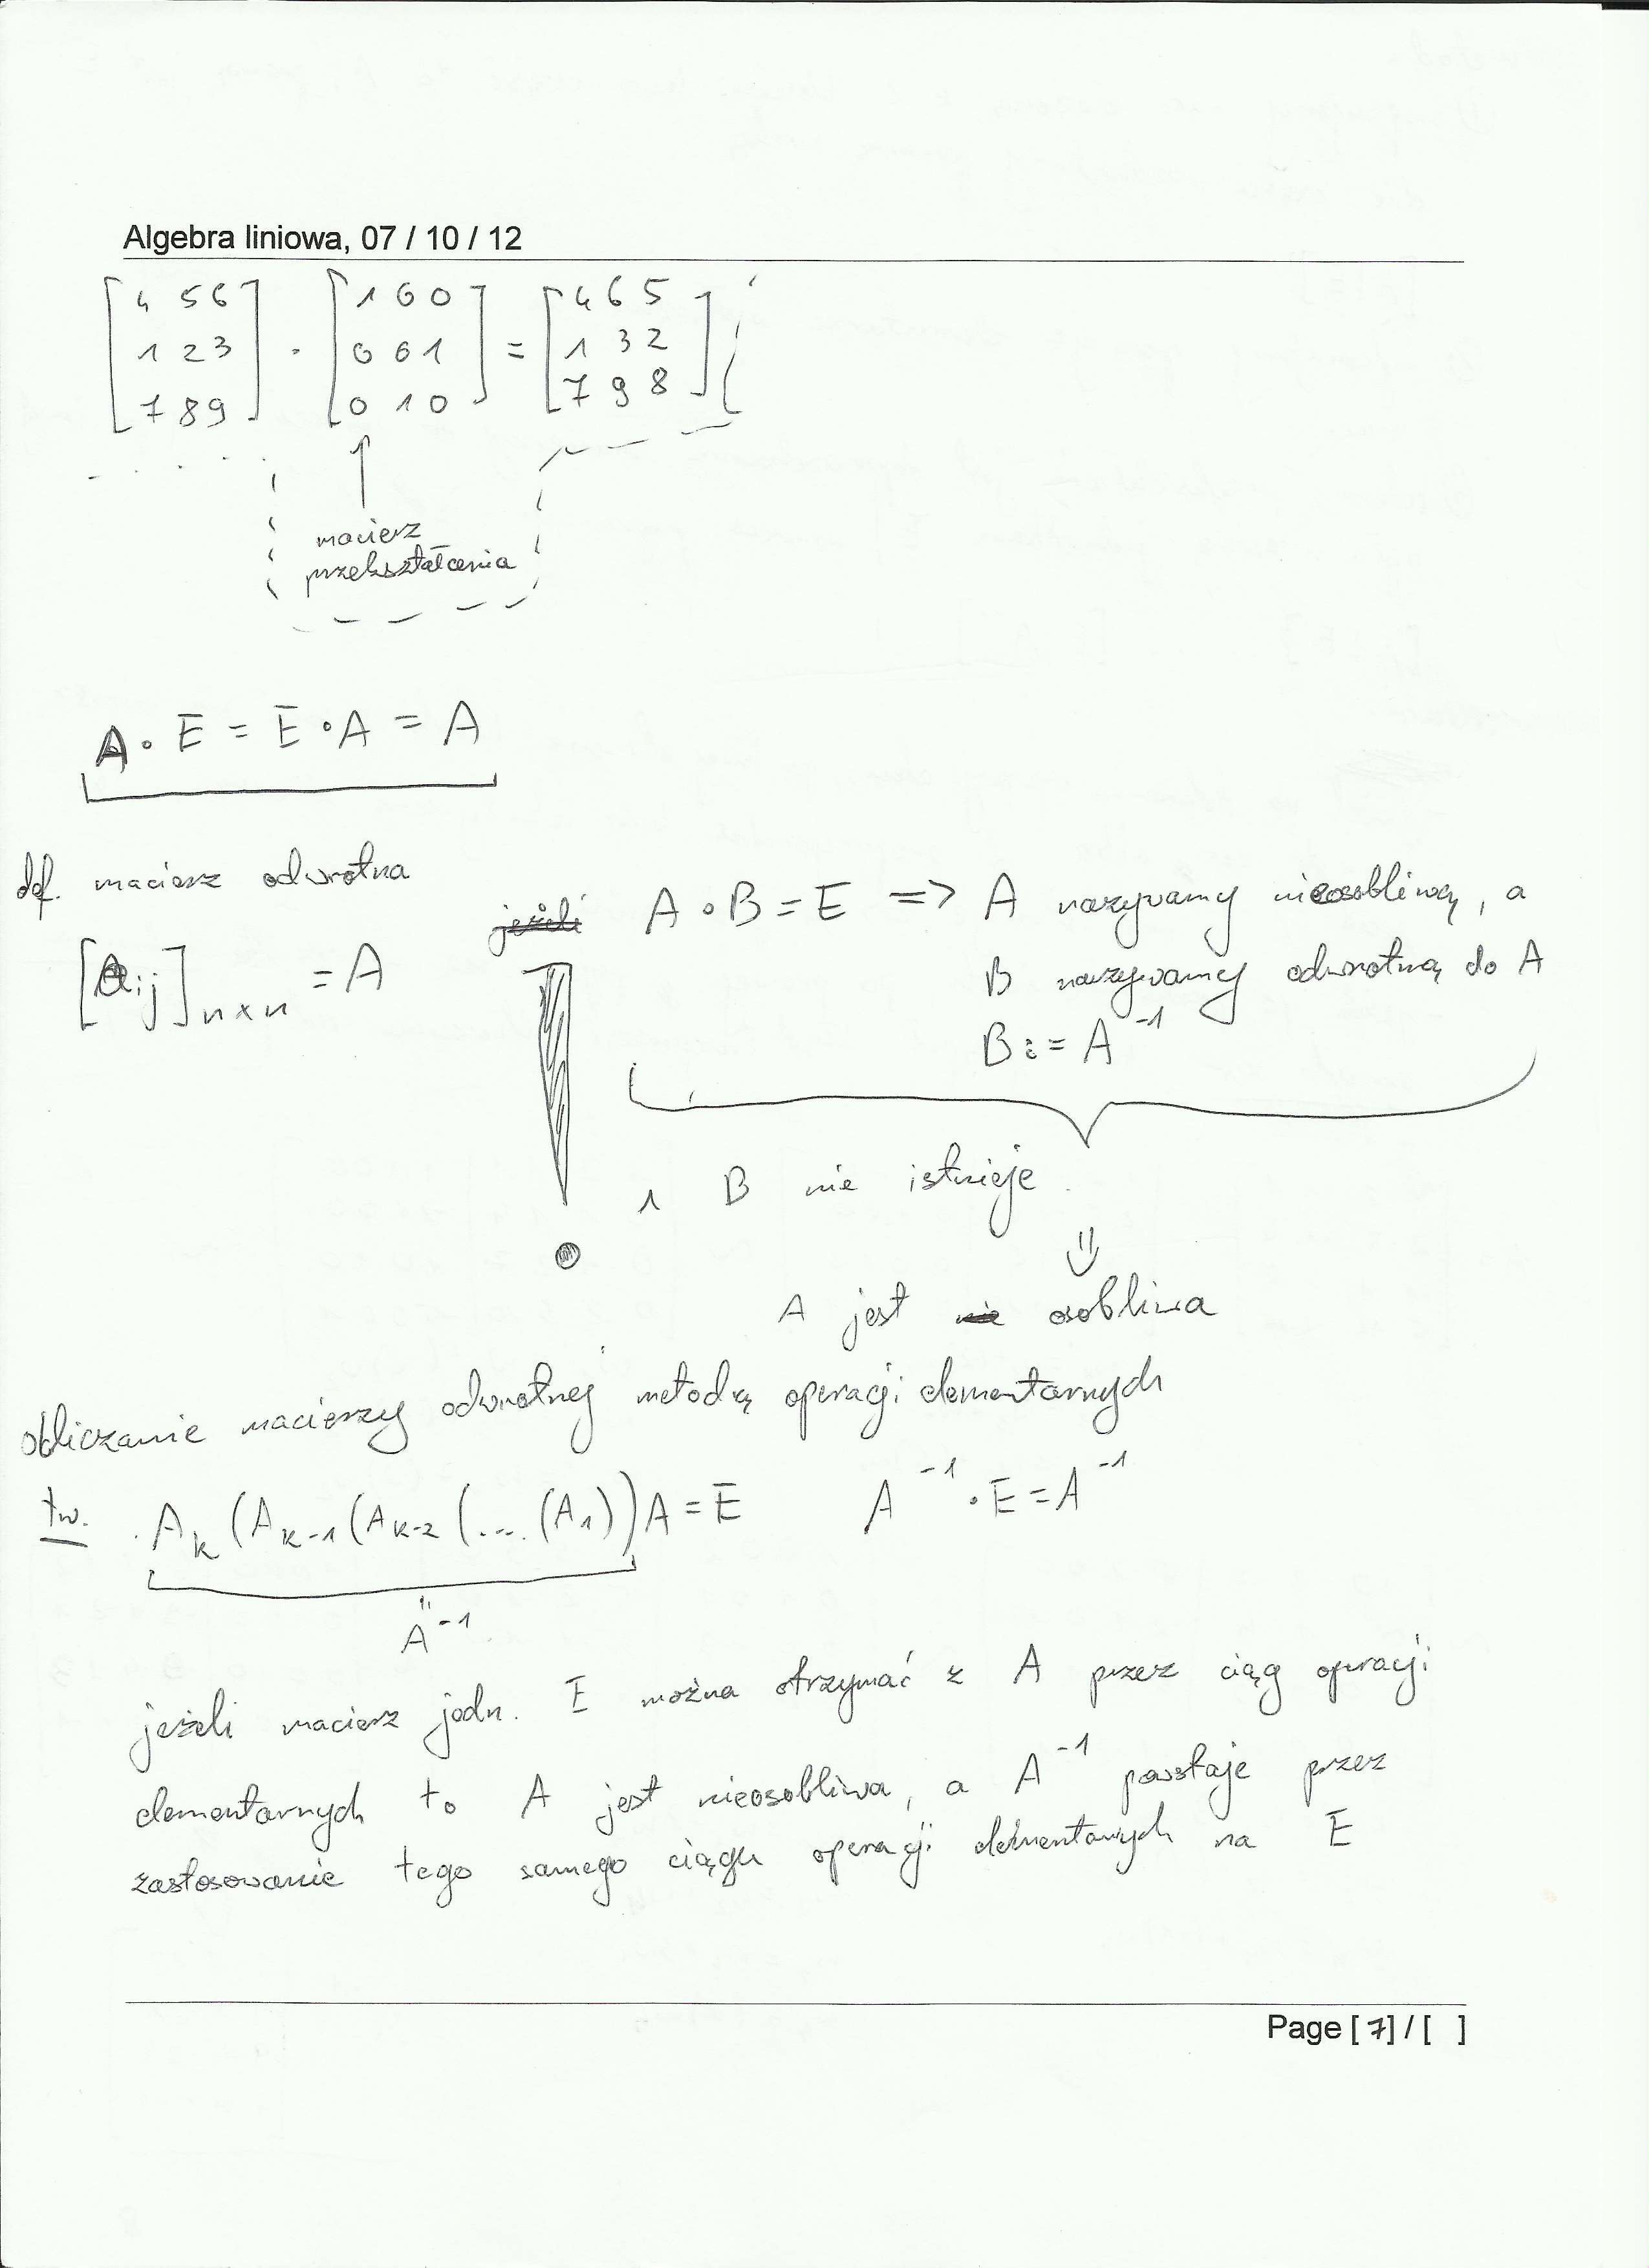 Algebra liniowa, 07 / 10 / 12
[4 5 6] [1 0 0] [4 6 5]
[1 2 3] · [0 0 1] = [1 3 2]
[7 8 9] [0 1 0] [7 9 8]
↑
macierz
przekształcenia
A · E = E · A = A
def. macierz odwrotna
[a_ij]_n×n = A
jeżeli A · B = E => A nazywamy nieosobliwą, a
B nazywamy odwrotną do A
B := A^-1
1 B nie istnieje
⇓
A jest nie osobliwa
obliczanie macierzy odwrotnej metodą operacji elementarnych
tw. A_k (A_k-1 (A_k-2 (... (A_1)) A = E A^-1 · E = A^-1
"
A^-1
jeżeli macierz jedn. E można otrzymać z A przez ciąg operacji
elementarnych to A jest nieosobliwa, a A^-1 powstaje przez
zastosowanie tego samego ciągu operacji elementarnych na E
Page [ 7] / [ ]